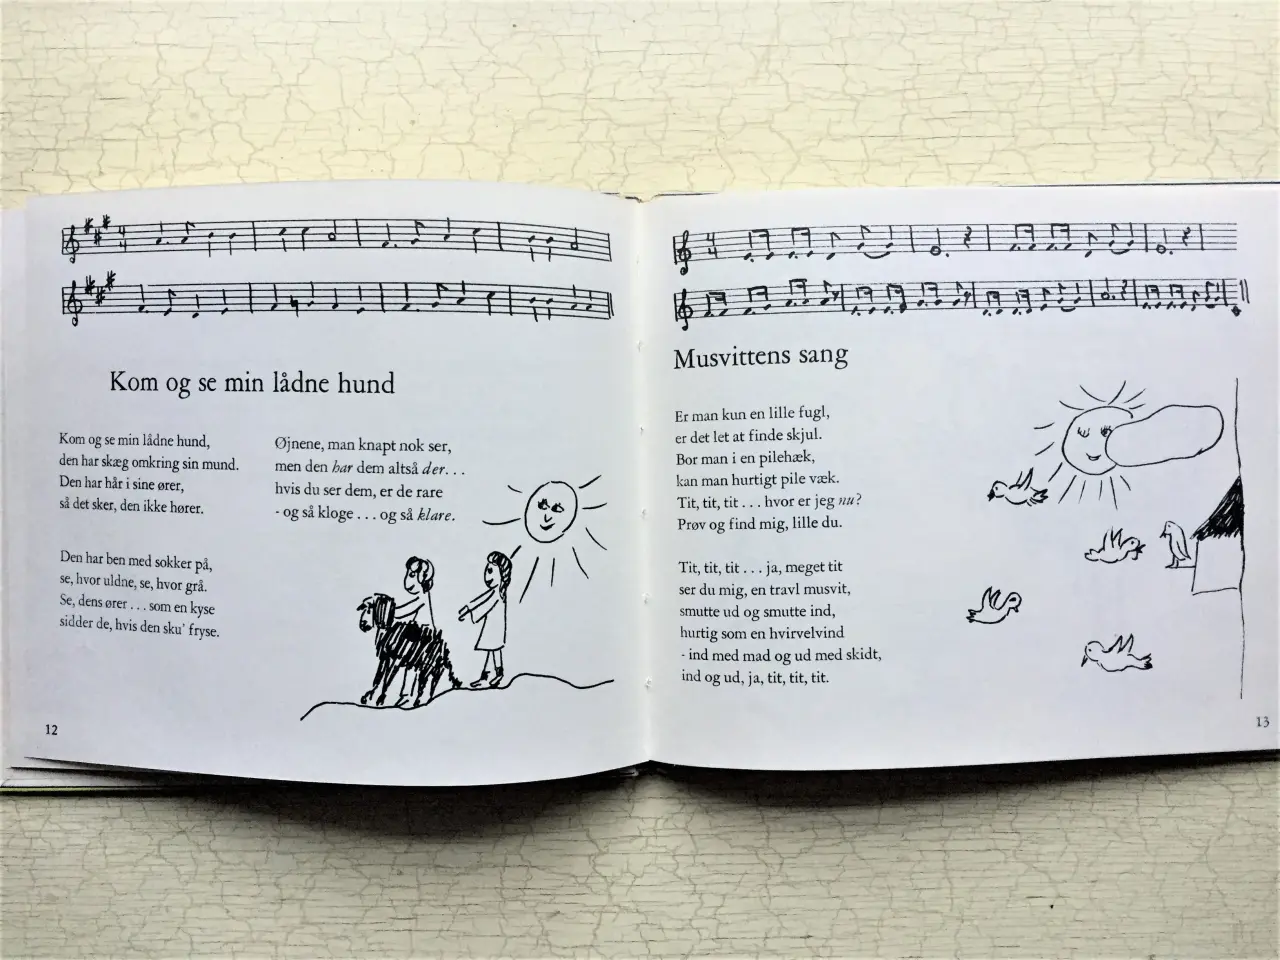 Kom og se min lådne hund
Kom og se min lådne hund,
den har skæg omkring sin mund.
Den har hår i sine ører,
så det sker, den ikke hører.
Den har ben med sokker på,
se, hvor uldne, se, hvor grå.
Se, dens ører . . . som en kyse
sidder de, hvis den sku' fryse.
Øjnene, man knapt nok ser,
men den har dem altså der. . .
hvis du ser dem, er de rare
- og så kloge . . . og så klare.
12
Musvittens sang
Er man kun en lille fugl,
er det let at finde skjul.
Bor man i en pilehæk,
kan man hurtigt pile væk.
Tit, tit, tit . . . hvor er jeg nu?
Prøv og find mig, lille du.
Tit, tit, tit . . . ja, meget tit
ser du mig, en travl musvit,
smutte ud og smutte ind,
hurtig som en hvirvelvind
- ind med mad og ud med skidt,
ind og ud, ja, tit, tit, tit.
13